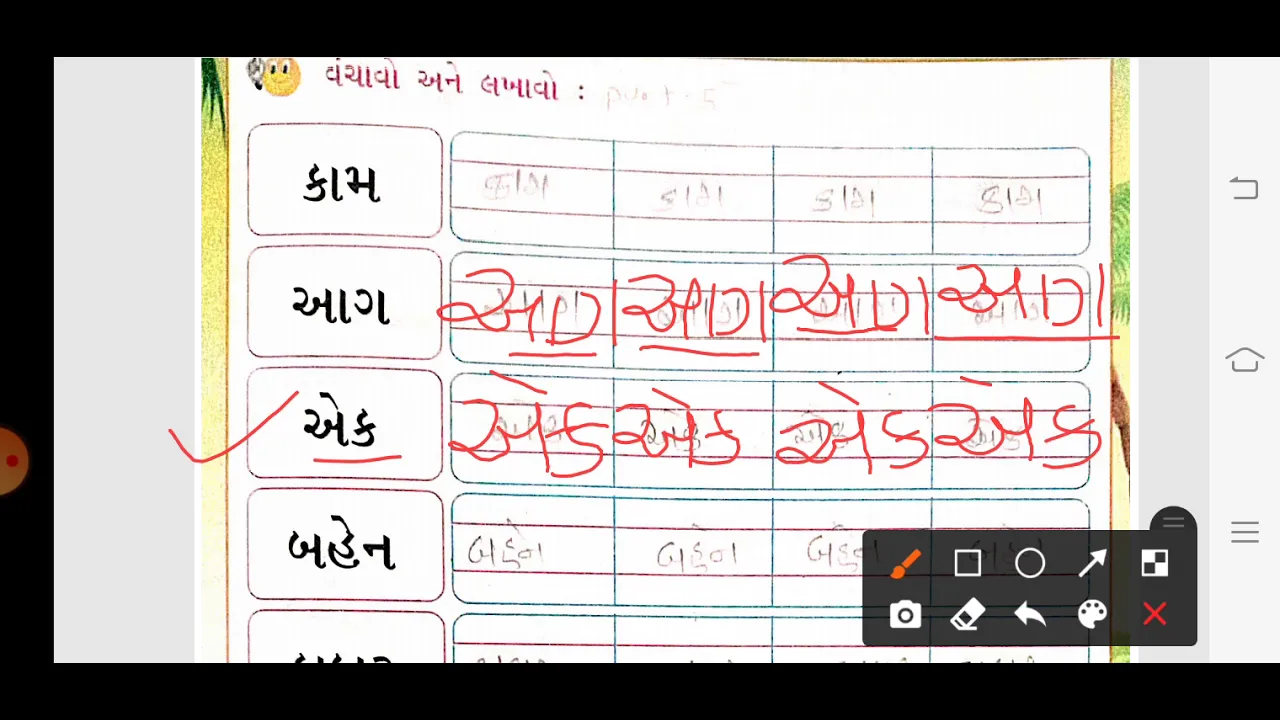 વંચાવો અને લખાવો : part - 5
કામ કામ કામ કામ કામ
આગ આગ આગ આગ આગ
એક એક એક એક એક
બહેન બહેન બહેન બહેન